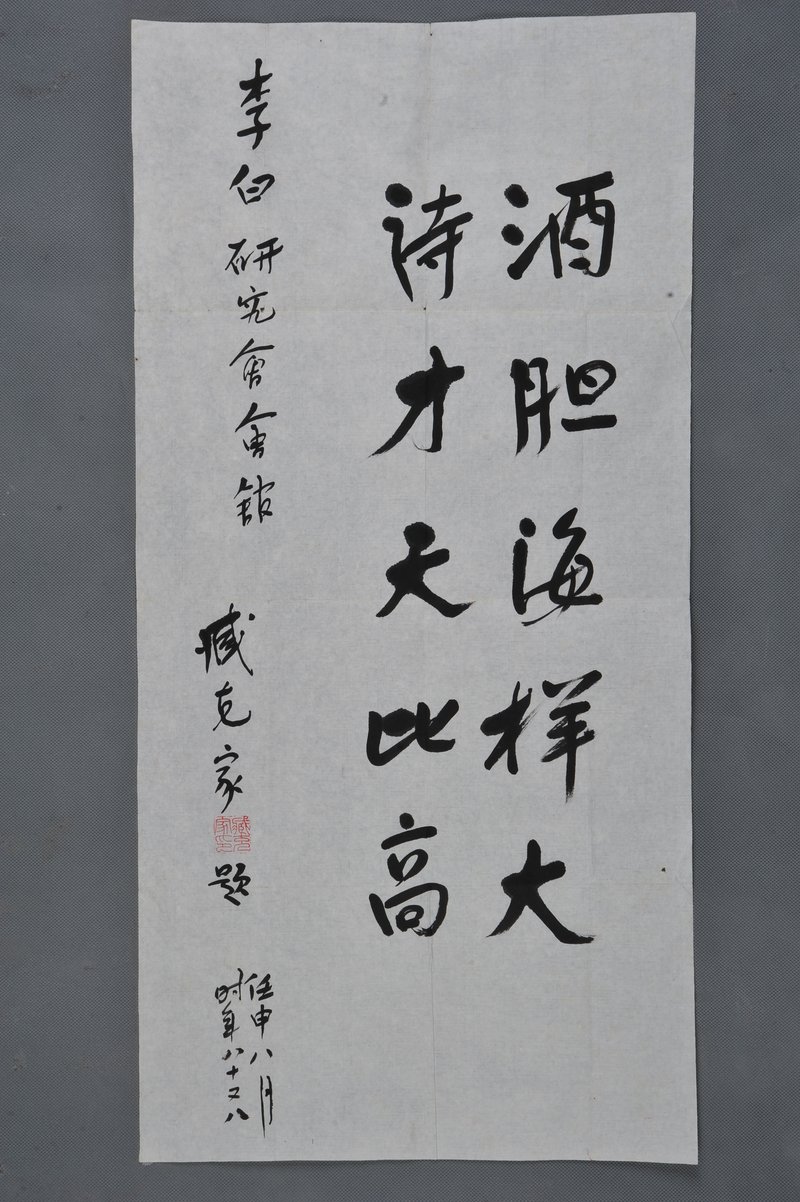 酒胆海样大
诗才天比高
李白研究会會館
臧克家題
壬申八月
时年八十又八
臧克家印